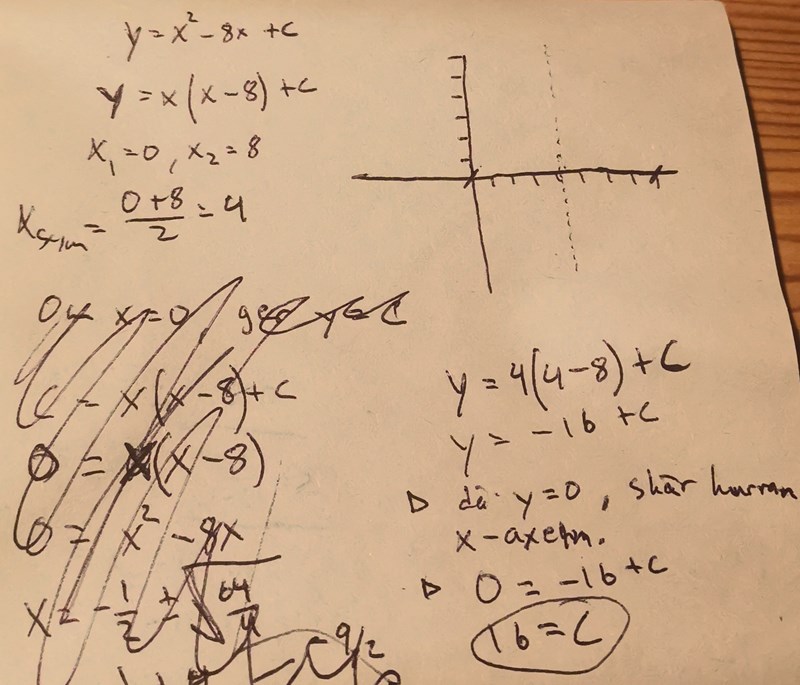 y = x² - 8x + C
y = x(x - 8) + C
x₁ = 0, x₂ = 8
x = (0 + 8)/2 = 4
x = 0 y = C
C = x(x - 8) + C
0 = x(x - 8)
0 = x² - 8x
x = -1/2 ± √(64/4)
y = 4(4 - 8) + C
y = -16 + C
då y = 0, skär kurvan
x-axeln.
0 = -16 + C
16 = C